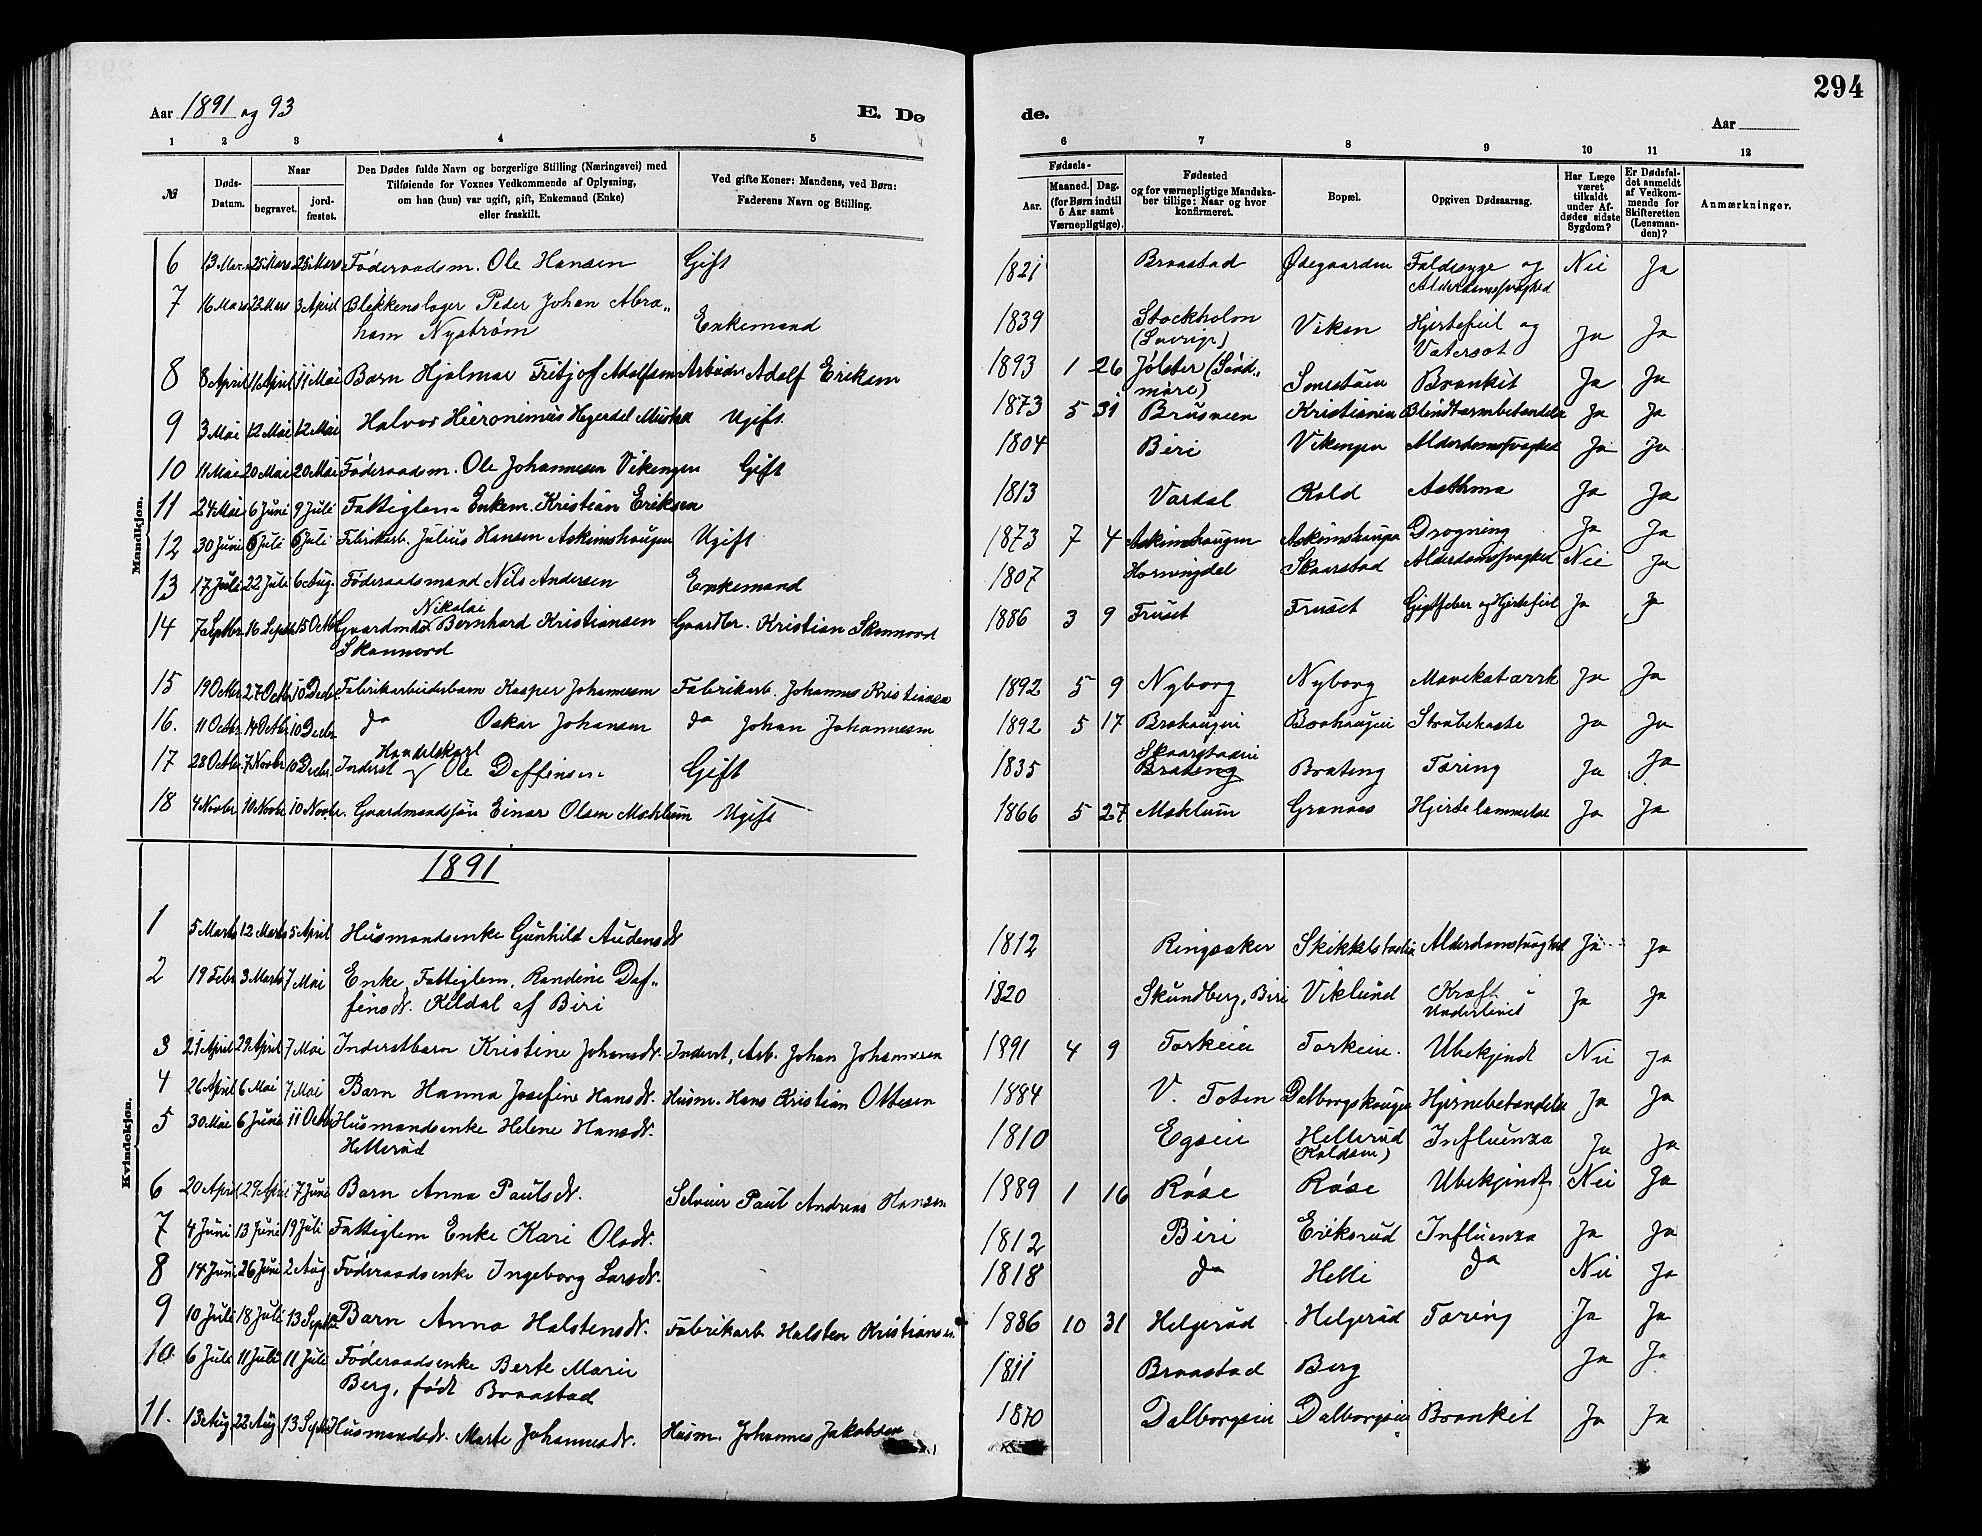 294
Aar 1891 og 93
E. Dø
de.
Aar
1 2 3 4 5
6 7 8 9 10 11 12
№
Døds-Datum.
Naar
begravet.
jord-fæstet.
Den Dødes fulde Navn og borgerlige Stilling (Næringsvei) med
Tilføiende for Voxnes Vedkommende af Oplysning,
om han (hun) var ugift, gift, Enkemand (Enke)
eller fraskilt.
Ved gifte Koner: Mandens, ved Børn:
Faderens Navn og Stilling.
Fødsels-
Aar.
Maaned. Dag.
(for Børn indtil
5 Aar samt
Værnepligtige).
Fødested
og for værnepligtige Mandska-
ber tillige: Naar og hvor
konfirmeret.
Bopæl.
Opgiven Dødsaarsag.
Har Læge
været
tilkaldt
under Af-
dødes sidste
Sygdom?
Er Dødsfal-
det anmeldt
af Vedkom-
mende for
Skifteretten
(Lensman-
den)?
Anmærkninger.
Mandkjøn.
6 13 Mars 25 Mars 25 Mars Føderaadsm. Ole Hansen Gift 1821 Braastad Ødegaarden Faldesyge og Nei Ja
Alderdomssvaghed
7 16 Mars 23 Mars 3 April Blikkenslager Peder Johan Abra„
ham Nystrøm Enkemand 1839 Stockholm Viken Hjertefeil og Ja Ja
(Sverige) Vatersot
8 8 April 11 April 11 Mai Barn Hjalmar Fritjof Adolfsen Arbeider Adolf Eriksen 1893 1 26 Jølster (Sønd„
møre) Bronkit Ja Ja
9 3 Mai 12 Mai 12 Mai Halvor Hieronimus Heyerdal Ugift 1873 5 31 Brusveen Kristiania Blindtarmbetændelse Ja Ja
10 11 Mai 20 Mai 20 Mai Føderaadsm. Ole Johannesen Vikengen Gift 1804 Biri Vikengen Alderdomssvaghed Ja Ja
11 24 Mai 6 Juni 9 Juli Fattiglem Enkem. Kristian Eriksen 1813 Vardal Kold Asthma Ja Ja
12 30 Juni 6 Juli 6 Juli Fabrikarb. Julius Hansen Askimshaugen Ugift 1873 7 4 Askimshaugen Askimshaugen Drogning Ja Ja
13 17 Juli 22 Juli 6 Aug. Føderaadsmand Nils Andersen Enkemand 1807 Hornindal Skaarstad Alderdomssvaghed Nei Ja
Nikolai
14 7 Septbr. 16 Septbr. 15 Octbr. Gaardmds. Bernhard Kristiansen Gaardbr. Kristian Skonnord 1886 3 9 Fruset Fruset Gigtfeber og Hjertefeil Ja Ja
Skonnord
15 19 Octbr. 27 Octbr. 10 Decbr. Fabrikarbeiderbarn Kasper Johannesen Fabrikarb. Johannes Kristiansen 1892 5 9 Nyborg Nyborg Mavekatarrh Ja Ja
16. 11 Octbr. 14 Octbr. 10 Decbr. do Oskar Johansen do Johan Johannesen 1892 5 17 Brahaugen Brahaugen Strubehoste Ja Ja
Handelskarl Skaarstadeie
17 28 Octbr. 7 Novbr. 10 Decbr. Inderst Ole Deffinsen Gift 1835 Brateng Brateng Tæring Ja Ja
18 4 Novbr. 10 Novbr. 10 Novbr. Gaardmandssøn Einar Olsen Mæhlum Ugift 1866 5 27 Mæhlum Granaas Hjertelammelse Ja Ja
1891
Kvindekjøn.
1 5 Marts 12 Marts 5 April Husmandsenke Gunhild Audensdt. 1812 Ringsaker Skikkelstadeie Alderdomssvaghed Ja Ja
2 19 Febr. 3 Marts 7 Mai Enke, Fattiglem, Randine Def„
finsdt. Kildal af Biri 1820 Skundberg, Biri Viklund Kræft i Ja Ja
Underlivet
3 21 April 29 April 7 Mai Inderstbarn Kristine Johansdt. Inderst, Arb. Johan Johannesen 1891 4 9 Torkeie Torkeie. Ubekjendt Nei Ja
4 26 April 6 Mai 7 Mai Barn Hanna Josefine Hansdt. Husm. Hans Kristian Ottesen 1884 V. Toten Dalborgshaugen Hjernebetændelse Ja Ja
5 30 Mai 6 Juni 11 Octbr. Husmandsenke Helene Hansdt. 1810 Egseie Hellerud Influenza Ja Ja
Hellerud
6 20 April 29 April 7 Juni Barn Anna Paulsdt. Selveier Paul Andreas Hansen 1889 1 16 Røse Røse Ubekjendt Nei Ja
7 4 Juni 13 Juni 19 Juli Fattiglem Enke Kari Olsdt. 1812 Biri Eriksrud Influenza Ja Ja
8 14 Juni 26 Juni 2 Aug. Føderaadsenke Ingeborg Larsdt. 1818 do Helli do Nei Ja
9 10 Juli 18 Juli 13 Septbr. Barn Anna Halstensdt. Fabrikarb. Halsten Kristiansen 1886 10 31 Helgerud Helgerud Tæring Ja Ja
10 6 Juli 11 Juli 11 Juli Føderaadsenke Berte Marie 1811 Braastad Berg Ja Ja
Berg, født Braastad
11. 13 Aug. 22 Aug. 13 Septbr. Husmandsdt. Marte Johannesdt. Husm. Johannes Jakobsen 1870 Dalborgseie Dalborgseie Bronkit Ja Ja